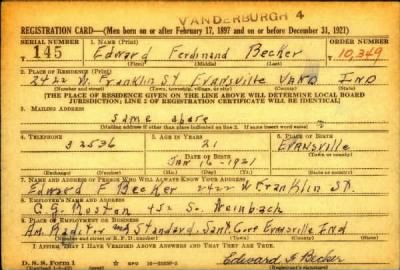 VANDERBURGH 4
REGISTRATION CARD—(Men born on or after February 17, 1897 and on or before December 31, 1921)
SERIAL NUMBER 1. NAME (Print) ORDER NUMBER
T 145 Edward Ferdinand Becker T 10,349
(First) (Middle) (Last)
2. PLACE OF RESIDENCE (Print)
2422 W. Franklin ST Evansville VAND IND
(Number and street) (Town, township, village, or city) (County) (State)
[THE PLACE OF RESIDENCE GIVEN ON THE LINE ABOVE WILL DETERMINE LOCAL BOARD
JURISDICTION; LINE 2 OF REGISTRATION CERTIFICATE WILL BE IDENTICAL]
3. MAILING ADDRESS
Same above
[Mailing address if other than place indicated on line 2. If same insert word same]
4. TELEPHONE 5. AGE IN YEARS 6. PLACE OF BIRTH
32536 21 Evansville
DATE OF BIRTH (Town or county)
JAN 16 - 1921
7. NAME AND ADDRESS OF PERSON WHO WILL ALWAYS KNOW YOUR ADDRESS
Edward F Becker 2422 W Franklin ST.
8. EMPLOYER'S NAME AND ADDRESS
C. G. 452 So. Weinbach
9. PLACE OF EMPLOYMENT OR BUSINESS
Am. Raditor and Standard Evansville Ind
I AFFIRM THAT I HAVE VERIFIED ABOVE ANSWERS AND THAT THEY ARE TRUE.
D. S. S. Form 1
Edward F Becker